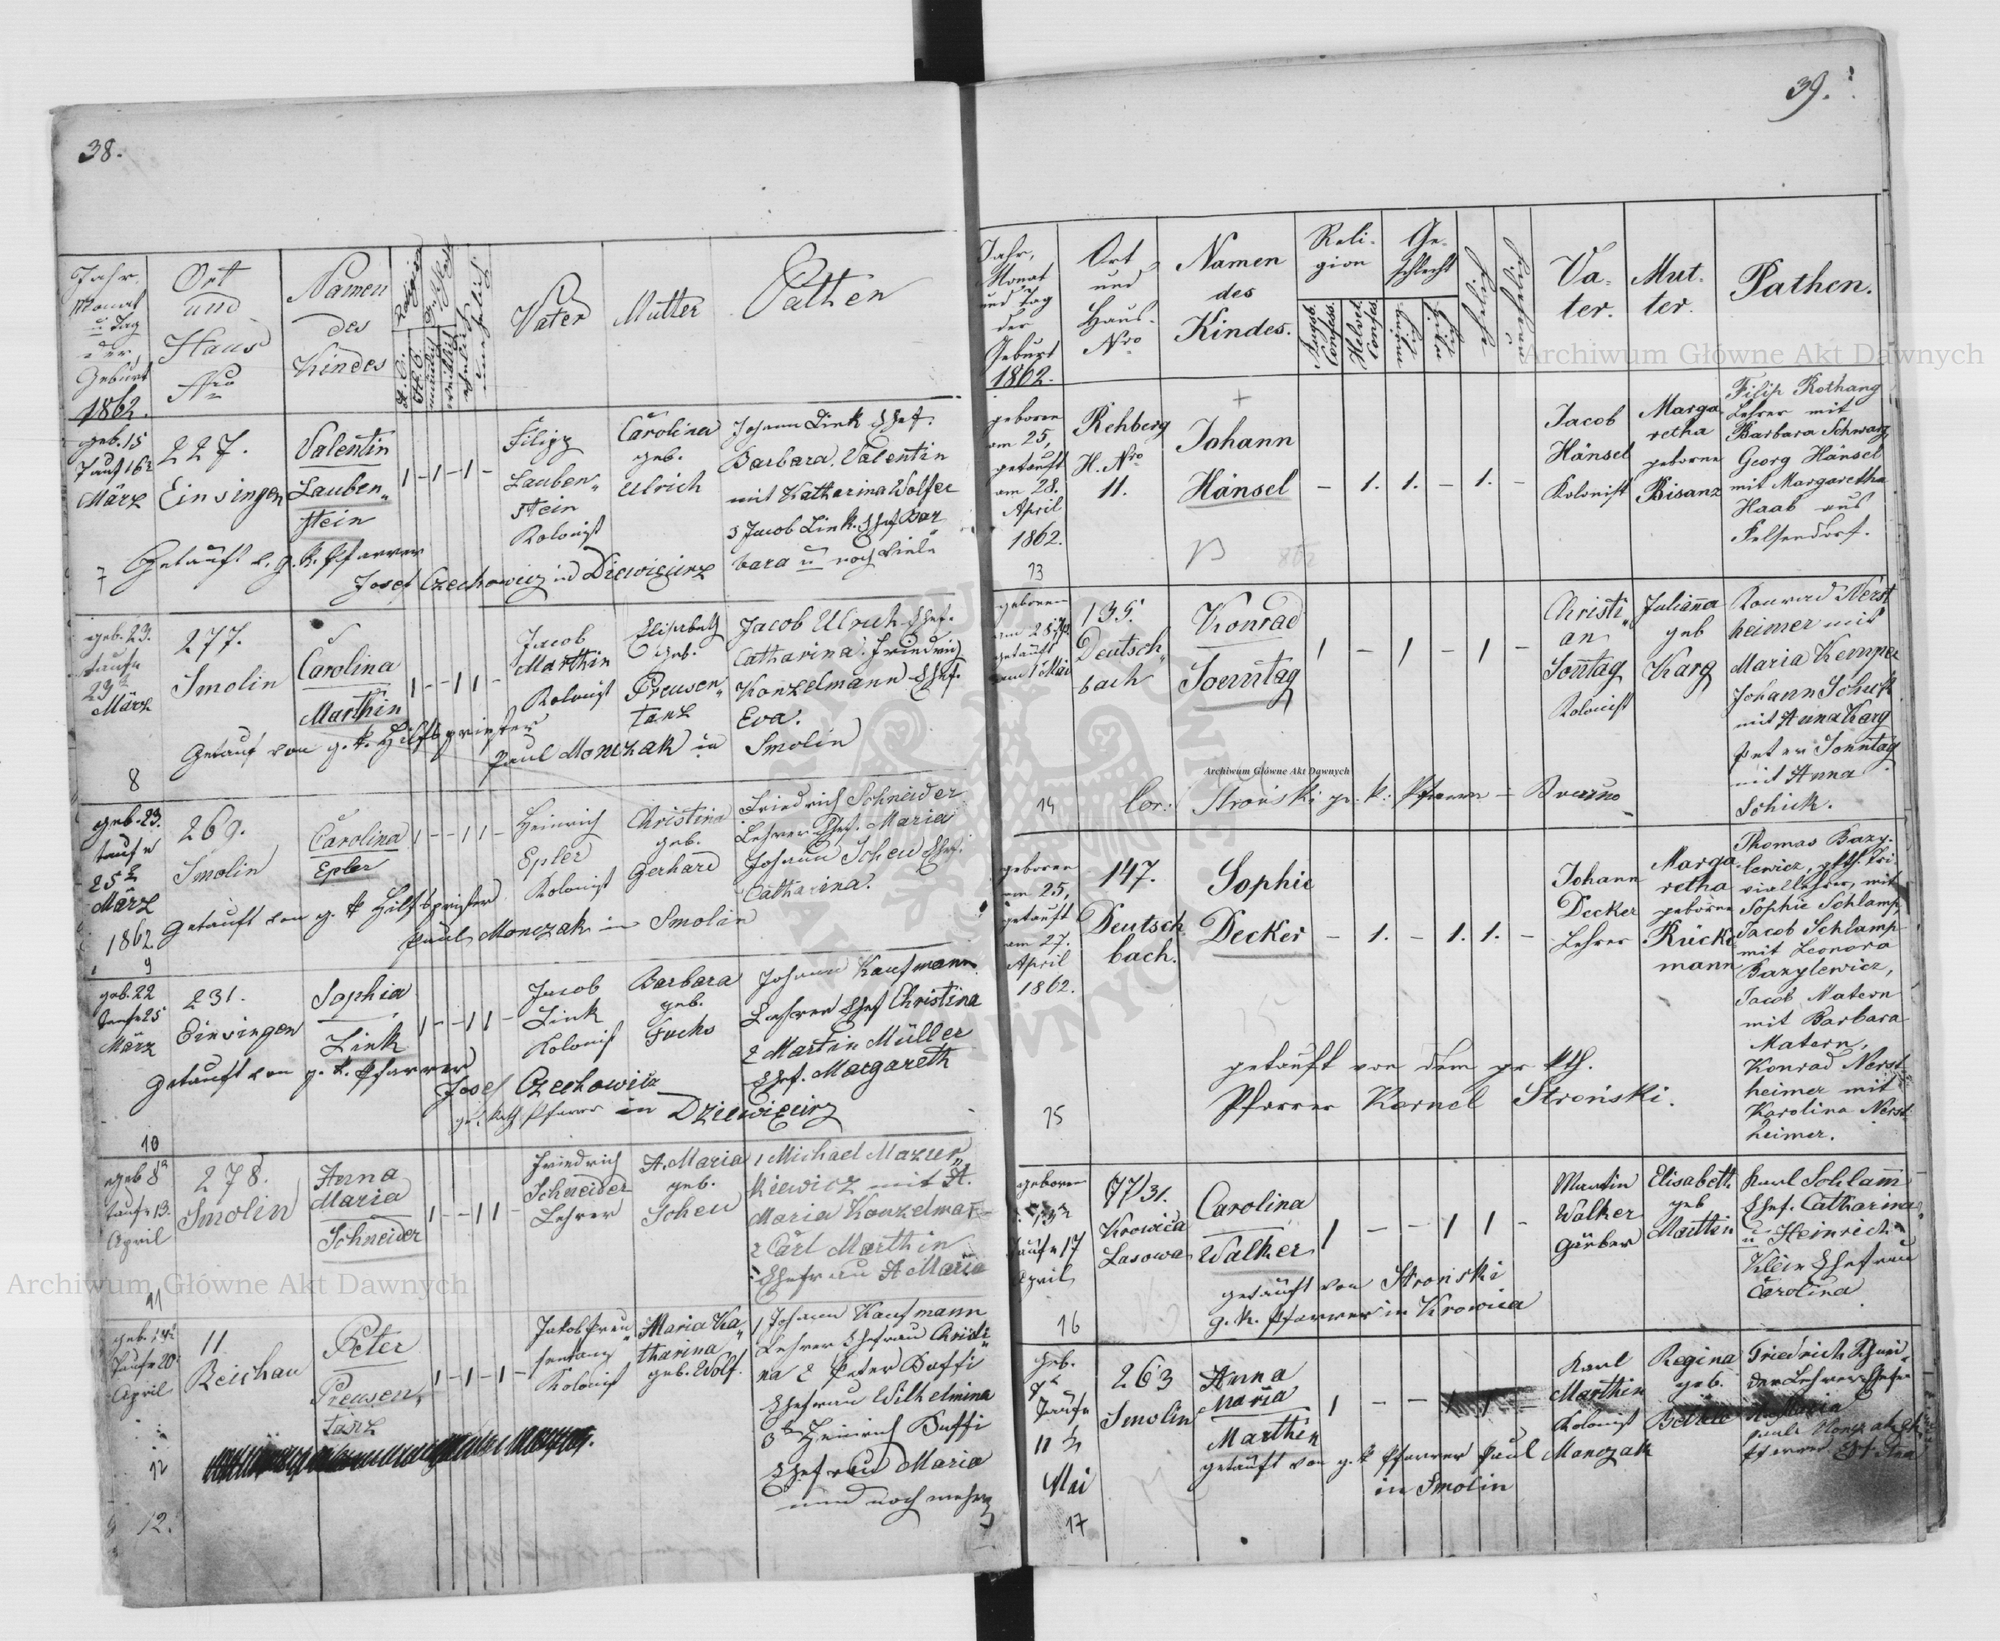 38.
Jahr,
Monat
u Tag
der
Geburt
1862.
Ort
und
Haus
Nro
Namen
des
Kindes
Religion
A. C.
H. C.
männlich
weiblich
Vater
Mutter
Pathen
geb. 15
Tauf 16
März
227.
Einsingen
Valentin
Lauben„
stein
1 - 1 - 1 -
Filipp
Lauben„
stein
Kolonist
Carolina
geb.
Ulrich
Johann Link Ehef.
Barbara. Valentin
mit Katharina Wolfer
3 Jacob Link. Ehef Bar
bara u noch Viele
7
Getauft v. g. k. Pfarrer
Josef Czechowicz in Dziewiecierz
geb. 23.
taufe
März
277.
Smolin
Carolina
Marthin
1 - - 1 1 -
Jacob
Marthin
Kolonist
Elisabeth
geb.
Preusen„
tanz
Jacob Ulrich Ehef.
Catharina. Friedrich
Konzelmann Ehef.
Eva.
Getauf von g. k. Hilfspriester
Paul Monczak in Smolin
8
geb. 23.
taufe
25
März
1862
269.
Smolin
Carolina
Epler
1 - - 1 1 -
Heinrich
Epler
Kolonist
Christina
geb.
Gerhard
Friedrich Schneider
Lehrer Ehef. Maria
Johann Scheu Ehef.
Catharina.
Getauft von g. k Hilfspriester
Paul Monczak in Smolin
9
geb. 22
taufe 25
März
231.
Einsingen
Sophia
Link
1 - - 1 1 -
Jacob
Link
Kolonist
Barbara
geb.
Fuchs
Johann Kaufmann
Lehrer Ehef Christina
2 Martin Müller
Ehef. Margareth
Getauft von g. k. Pfarrer
Josef Czechowicz
gr. kath Pfarrer in Dziewiecierz
10
geb 8
taufe 13.
April
278.
Smolin
Anna
Maria
Schneider
1 - - 1 1 -
Friedrich
Schneider
Lehrer
A. Maria
geb.
Scheu
1 Michael Mazur„
kiewicz mit A.
Maria Konzelman
2 Carl Marthin
Ehefrau A Maria
11
geb. 14
Taufe 20
April
11
Reichau
Peter
Preusen„
tanz
1 - 1 - 1 -
Jakob Preu„
sentanz
Kolonist
Maria Ka„
tharina
geb. Wolf.
1 Johann Kaufmann
Lehrer Ehefrau Christi„
na 2 Peter Daffi
Ehefrau Wilhelmina
3 Heinrich Daffi
Ehefrau Maria
und noch mehre
12
12.
39.
Jahr,
Monat
und Tag
der
Geburt
1862.
Ort
und
Haus-
Nro
Namen
des
Kindes.
Reli-
gion
Augsb.
Confess.
Helvet.
Confess.
Ge-
schlecht
männ
lich
weib
lich
ehelich
unehelich
Va-
ter.
Mut-
ter.
Pathen.
geboren
am 25,
getauft
am 28.
April
1862.
Rehberg
H. Nro
11.
Johann
Hänsel
- 1. 1. - 1. -
Jacob
Hänsel
Kolonist
Marga
retha
geborne
Bisanz
Filip Rothang
Lehrer mit
Barbara Schwarz,
Georg Hänsel
mit Margaretha
Haab aus
Felsendorf.
13
geboren
getauft
am 1 Mai
135.
Deutsch„
bach
Konrad
Sonntag
1 - 1 - 1 -
Christi„
an
Sontag
Kolonist
Julianna
geb
Karg
Konrad Nerst
heimer mit
Maria Kemper
Johann Schick
mit Anna Karg
Peter Sonntag
mit Anna
Schick.
14
Cor: Stroński gr. k: Pfarrer
geboren
am 25,
getauft
am 27.
April
1862.
147.
Deutsch
bach.
Sophie
Decker
- 1. - 1. 1. -
Johann
Decker
Lehrer
Marga
retha
geborne
Rück
mann
Thomas Bazy-
lewicz, gkth. Tri
viallehrer, mit
Sophie Schlamp,
Jacob Schlamp
mit Leonora
Bazylewicz,
Jacob Matern
mit Barbara
Matern,
Konrad Nerst
heimer mit
Karolina Nerst
heimer.
getauft von dem gr kth.
Pfarrer Kornel Stroński.
15
geboren
13
Taufe 17
April
77/31.
Krowica
Lasowa
Carolina
Walker
1 - - 1 1 -
Martin
Walker
Gärber
Elisabeth
geb
Marthin
Karl Schlam
Ehef. Catharina
u Heinrich
Klein Ehefrau
Carolina
getauft von Stroński
g. k. Pfarrer in Krowica
16
geb.
Taufe
11
Mai
263
Smolin
Anna
Maria
Marthin
1 - - 1 1 -
Karl
Marthin
Kolonist
Regina
geb.
Friedrich Schnei„
der Lehrer Ehefr
A. Maria
getauft von g. k Pfarrer Paul Monczak
in Smolin
17
Archiwum Główne Akt Dawnych
Archiwum Główne Akt Dawnych
Archiwum Główne Akt Dawnych